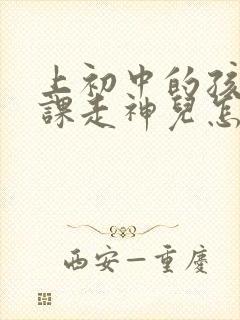 上初中的孩
課走神兒怎
西安—重慶